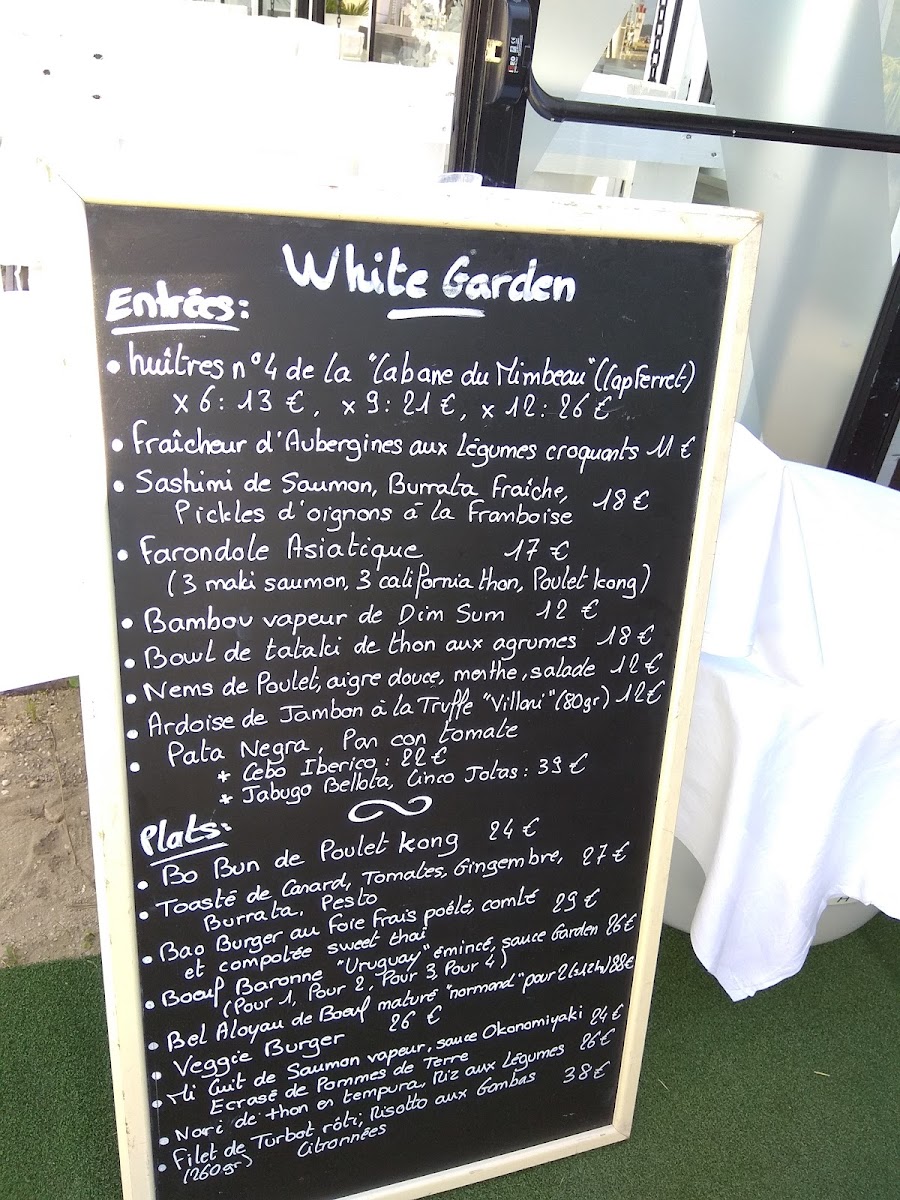 White Garden
Entrées:
• huîtres n°4 de la "Cabane du Mimbeau" (Cap Ferret)
x 6: 13 €, x 9: 21 €, x 12: 26 €
• Fraîcheur d'Aubergines aux Légumes croquants 11 €
• Sashimi de Saumon, Burrata Fraîche, 18 €
Pickles d'oignons à la Framboise
• Farondole Asiatique 17 €
(3 maki saumon, 3 california thon, Poulet kong)
• Bambou vapeur de Dim Sum 12 €
• Bowl de tataki de thon aux agrumes 18 €
• Nems de Poulet, aigre douce, menthe, salade 12 €
• Ardoise de Jambon à la Truffe "Villani" (80gr) 12 €
• Pata Negra, Pan con tomate
+ Cebo Iberico: 22 €
+ Jabugo Bellota, Cinco Jotas: 39 €
Plats:
• Bo Bun de Poulet kong 24 €
• Toasté de Canard, Tomates, Gingembre, 27 €
Burrata, Pesto
• Bao Burger au Foie Frais poêlé, comté 29 €
et compotée sweet thai
• Boeuf Baronne "Uruguay" émincé, sauce Garden 26 €
(Pour 1, Pour 2, Pour 3, Pour 4)
• Bel Aloyau de Boeuf maturé "normand" pour 2 (±1,2kg) 88 €
• Veggie Burger 26 €
• Mi Cuit de Saumon vapeur, sauce Okonomiyaki 24 €
Ecrasé de Pommes de Terre
• Nori de thon en tempura, Riz aux Légumes 26 €
• Filet de Turbot rôti, Risotto aux Gambas 38 €
(260gr) Citronnées